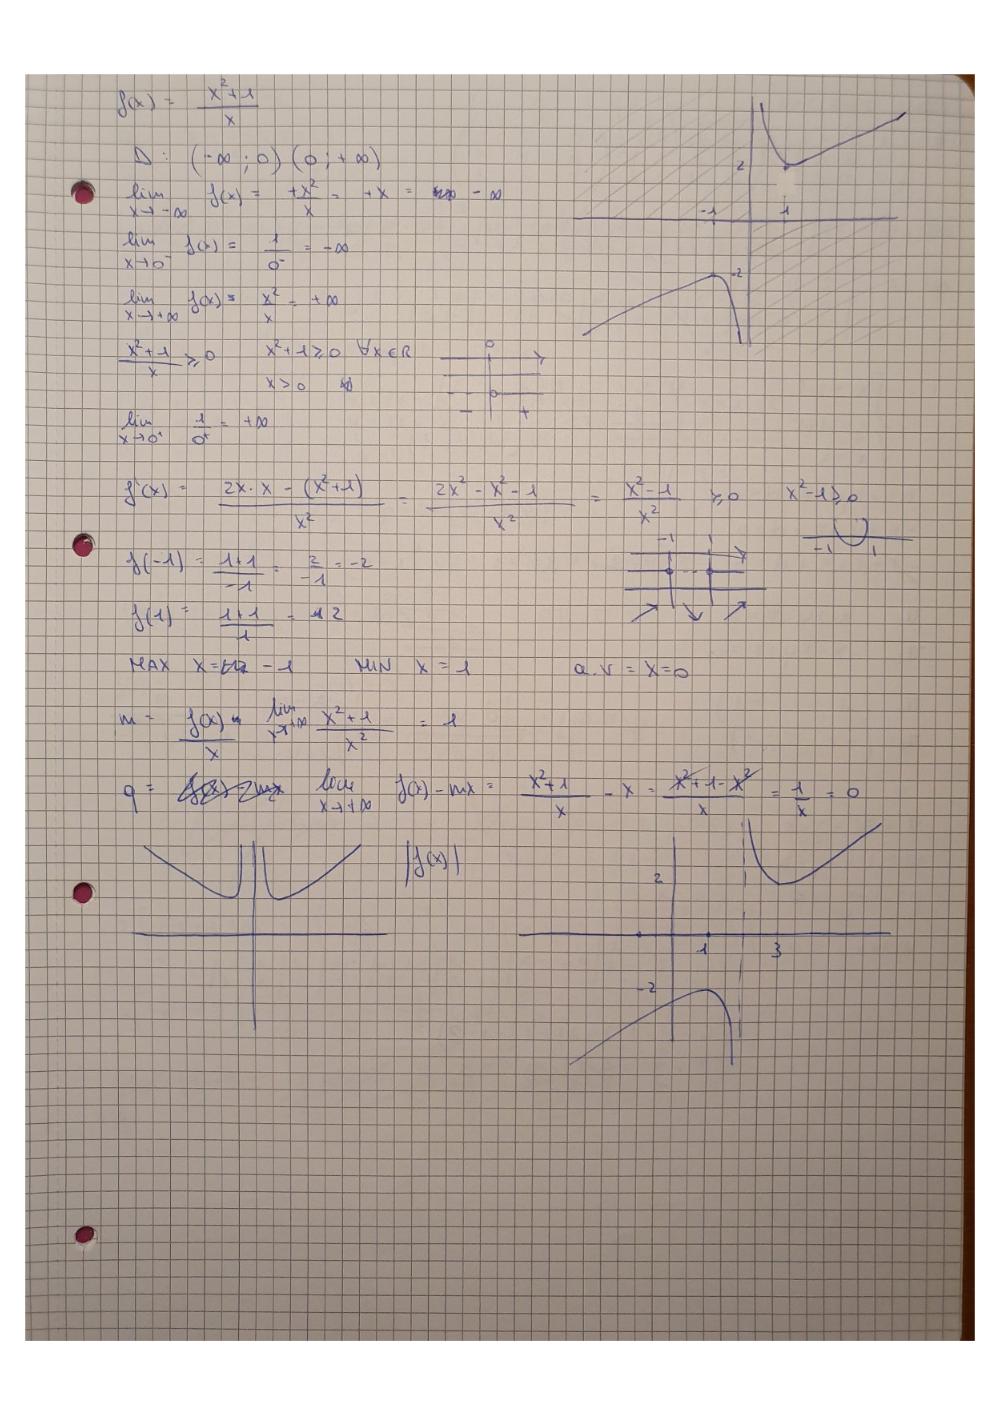 f(x) = x²+1 / x
D: (-∞ ; 0) (0 ; +∞)
lim x→-∞ f(x) = +x² / x = +x = -∞
lim x→0⁻ f(x) = 1 / 0⁻ = -∞
lim x→+∞ f(x) = x² / x = +∞
x²+1 / x ≥ 0 x²+1 ≥ 0 ∀x∈R
x > 0
0
- +
lim x→0⁺ 1 / 0⁺ = +∞
2
-1 1
-2
f'(x) = 2x·x - (x²+1) / x² = 2x² - x² - 1 / x² = x²-1 / x² ≥ 0 x²-1 ≥ 0
-1 1
-1 1
f(-1) = 1+1 / -1 = 2 / -1 = -2
f(1) = 1+1 / 1 = 2
MAX x = -1 MIN x = 1 a.v = x=0
m = f(x) / x = lim x→+∞ x²+1 / x² = 1
q = lim x→+∞ f(x) - mx = x²+1 / x - x = x²+1-x² / x = 1 / x = 0
|f(x)|
2
1 3
-2